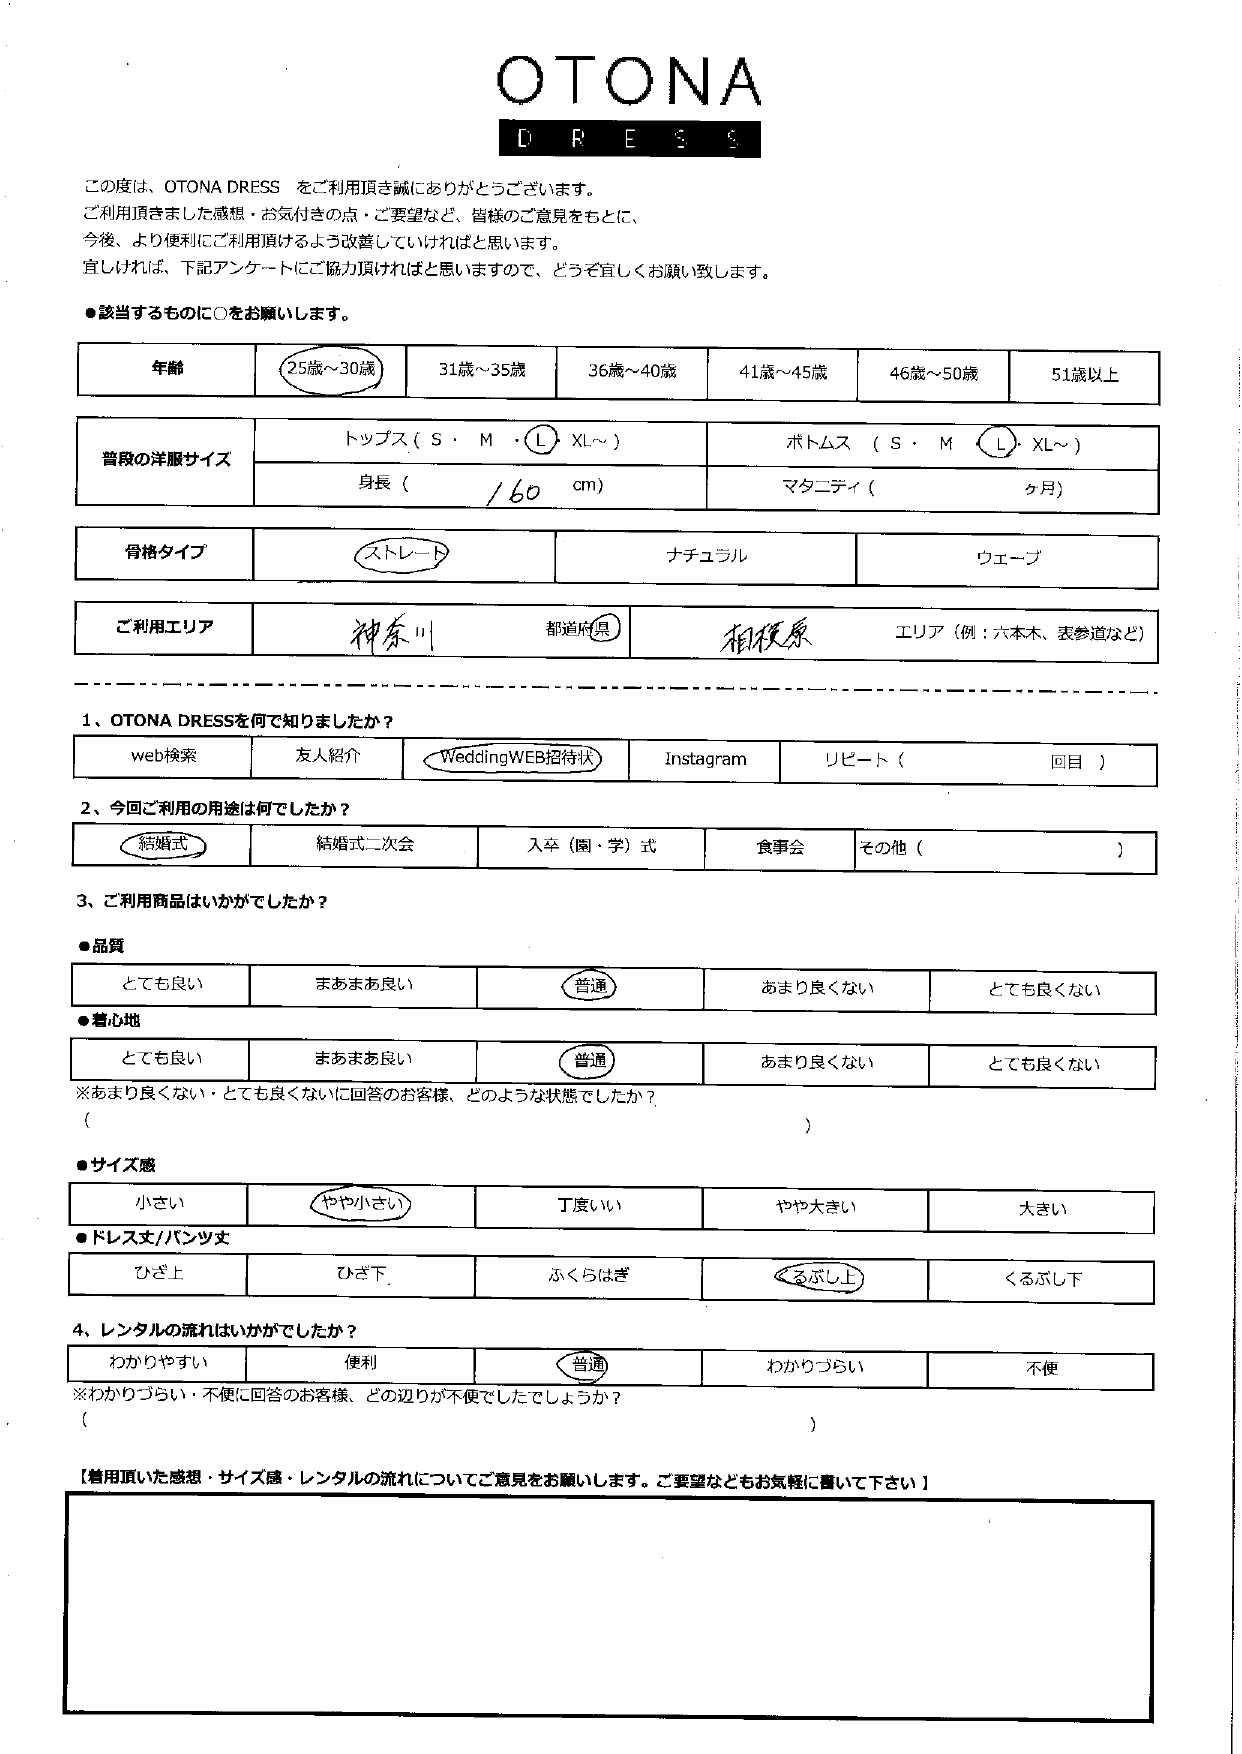 OTONA
DRESS
この度は、OTONA DRESS　をご利用頂き誠にありがとうございます。
ご利用頂きました感想・お気付きの点・ご要望など、皆様のご意見をもとに、
今後、より便利にご利用頂けるよう改善していければと思います。
宜しければ、下記アンケートにご協力頂ければと思いますので、どうぞ宜しくお願い致します。
●該当するものに○をお願いします。
年齢 25歳～30歳 31歳～35歳 36歳～40歳 41歳～45歳 46歳～50歳 51歳以上
普段の洋服サイズ トップス ( S ・ M ・ L ・ XL～ ) ボトムス ( S ・ M ・ L ・ XL～ )
身長 ( 160 cm) マタニティ ( ヶ月)
骨格タイプ ストレート ナチュラル ウェーブ
ご利用エリア 神奈川 都道府県 相模原 エリア（例：六本木、表参道など）
1、OTONA DRESSを何で知りましたか？
web検索 友人紹介 WeddingWEB招待状 Instagram リピート ( 回目 )
2、今回ご利用の用途は何でしたか？
結婚式 結婚式二次会 入卒（園・学）式 食事会 その他 ( )
3、ご利用商品はいかがでしたか？
●品質
とても良い まあまあ良い 普通 あまり良くない とても良くない
●着心地
とても良い まあまあ良い 普通 あまり良くない とても良くない
※あまり良くない・とても良くないに回答のお客様、どのような状態でしたか？
( )
●サイズ感
小さい やや小さい 丁度いい やや大きい 大きい
●ドレス丈/パンツ丈
ひざ上 ひざ下 ふくらはぎ くるぶし上 くるぶし下
4、レンタルの流れはいかがでしたか？
わかりやすい 便利 普通 わかりづらい 不便
※わかりづらい・不便に回答のお客様、どの辺りが不便でしたでしょうか？
( )
【着用頂いた感想・サイズ感・レンタルの流れについてご意見をお願いします。ご要望などもお気軽に書いて下さい】